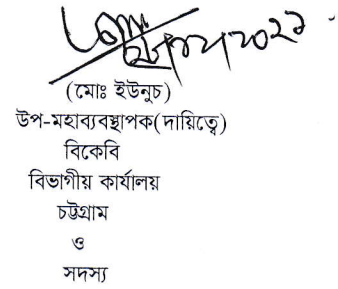 (মোঃ ইউনুচ)
উপ-মহাব্যবস্থাপক(দায়িত্বে)
বিকেবি
বিভাগীয় কার্যালয়
চট্টগ্রাম
ও
সদস্য